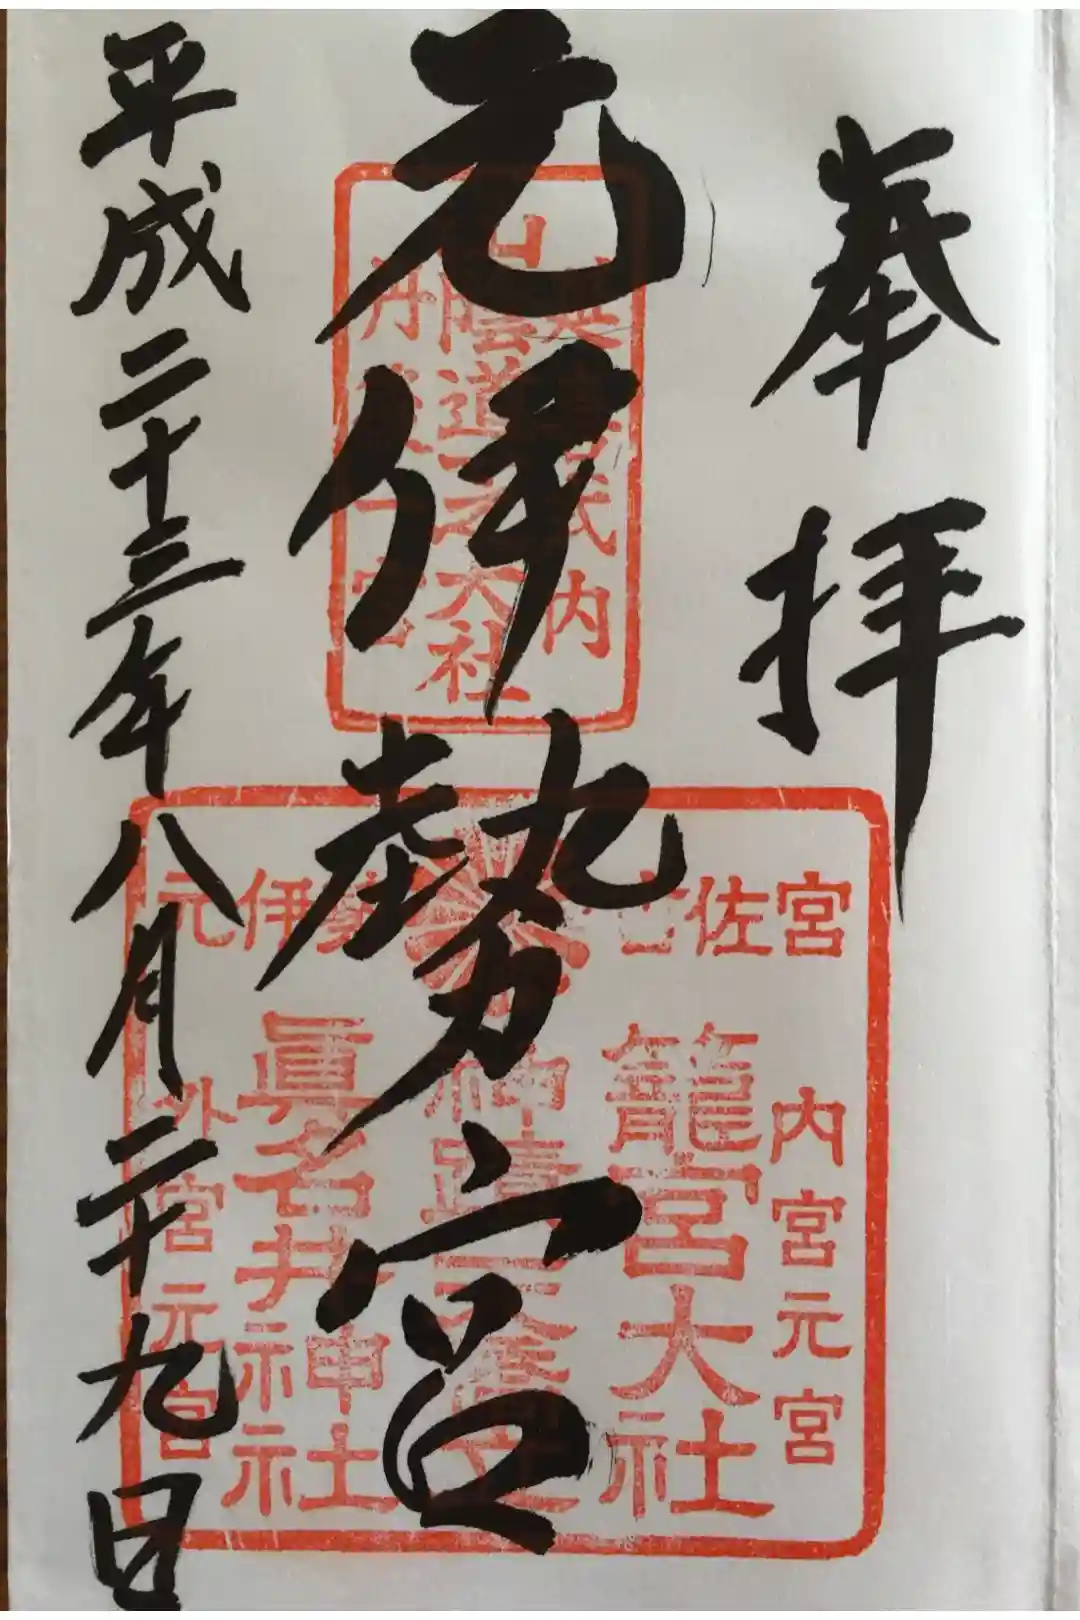 奉拝
元伊勢宮
平成二十三年八月二十九日
内
山陰道之大社
丹一宮
元伊勢
吉佐宮
内宮元宮
籠宮大社
神蹟
眞名井神社
外宮元宮